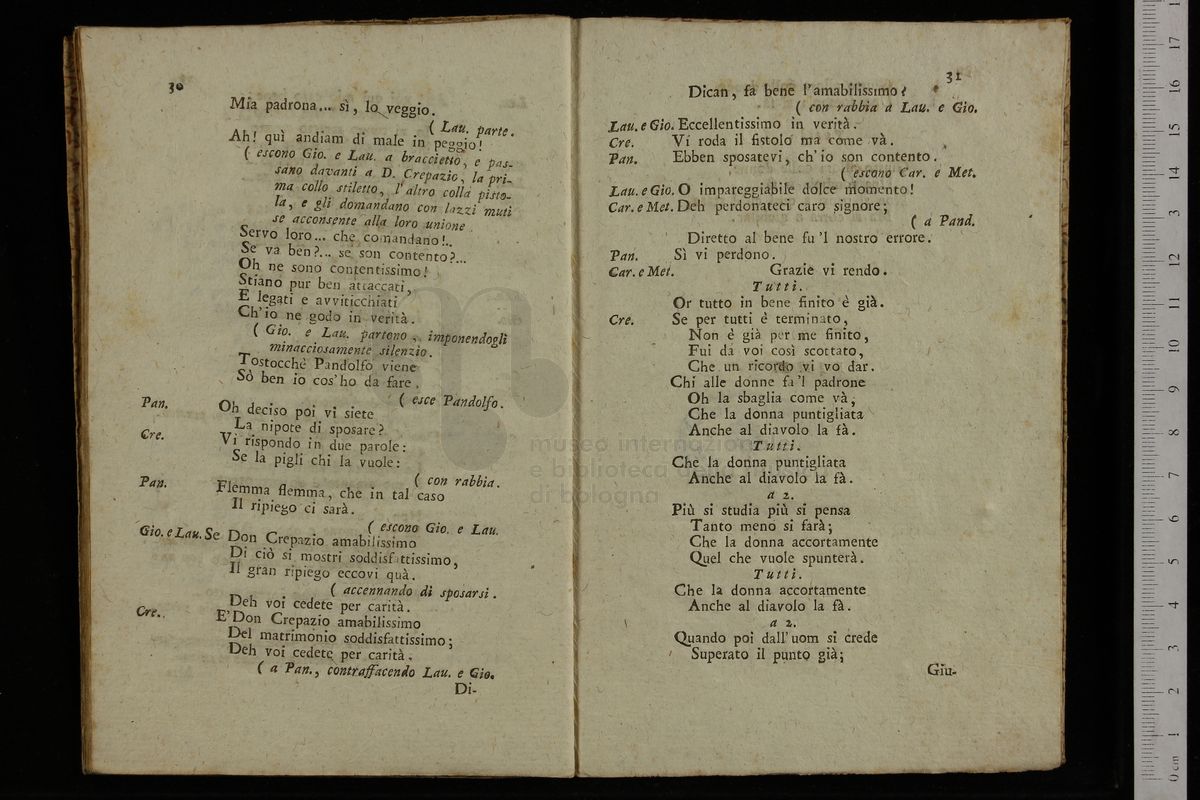 30
Mia padrona... sì, lo veggio.
( Lau. parte.
Ah! quì andiam di male in peggio!
( escono Gio. e Lau. a braccietto, e pas-
sano davanti a D. Crepazio, la pri-
ma collo stiletto, l'altro colla pisto-
la, e gli domandano con lazzi muti
se acconsente alla loro unione.
Servo loro... che comandano!..
Se va ben?... se son contento?...
Oh ne sono contentissimo!
Stiano pur ben attaccati,
E legati e avviticchiati
Ch'io ne godo in verità.
( Gio. e Lau. partono, imponendogli
minacciosamente silenzio.
Tostocchè Pandolfo viene
Sò ben io cos'ho da fare.
( esce Pandolfo.
Pan. Oh deciso poi vi siete
La nipote di sposare?
Cre. Vi rispondo in due parole:
Se la pigli chi la vuole:
( con rabbia.
Pan. Flemma flemma, che in tal caso
Il ripiego ci sarà.
( escono Gio. e Lau.
Gio. e Lau. Se Don Crepazio amabilissimo
Di ciò si mostri soddisfattissimo,
Il gran ripiego eccovi quà.
( accennando di sposarsi.
Deh voi cedete per carità.
Cre. E' Don Crepazio amabilissimo
Del matrimonio soddisfattissimo;
Deh voi cedete per carità.
( a Pan., contraffacendo Lau. e Gio.
Di-
31
Dican, fa bene l'amabilissimo?
( con rabbia a Lau. e Gio.
Lau. e Gio. Eccellentissimo in verità.
Cre. Vi roda il fistolo ma come và.
Pan. Ebben sposatevi, ch'io son contento.
( escono Car. e Met.
Lau. e Gio. O impareggiabile dolce momento!
Car. e Met. Deh perdonateci caro signore;
( a Pand.
Diretto al bene fu 'l nostro errore.
Pan. Sì vi perdono.
Car. e Met. Grazie vi rendo.
Tutti.
Or tutto in bene finito è già.
Cre. Se per tutti è terminato,
Non è già per me finito,
Fui da voi così scottato,
Che un ricordo vi vo dar.
Chi alle donne fa 'l padrone
Oh la sbaglia come và;
Che la donna puntigliata
Anche al diavolo la fà.
Tutti.
Che la donna puntigliata
Anche al diavolo la fà.
a 2.
Più si studia più si pensa
Tanto meno si farà;
Che la donna accortamente
Quel che vuole spunterà.
Tutti.
Che la donna accortamente
Anche al diavolo la fà.
a 2.
Quando poi dall'uom si crede
Superato il punto già;
Giu-
museo internazion
e biblioteca d
di bologna
0 cm 1 2 3 4 5 6 7 8 9 10 11 12 13 14 15 16 17